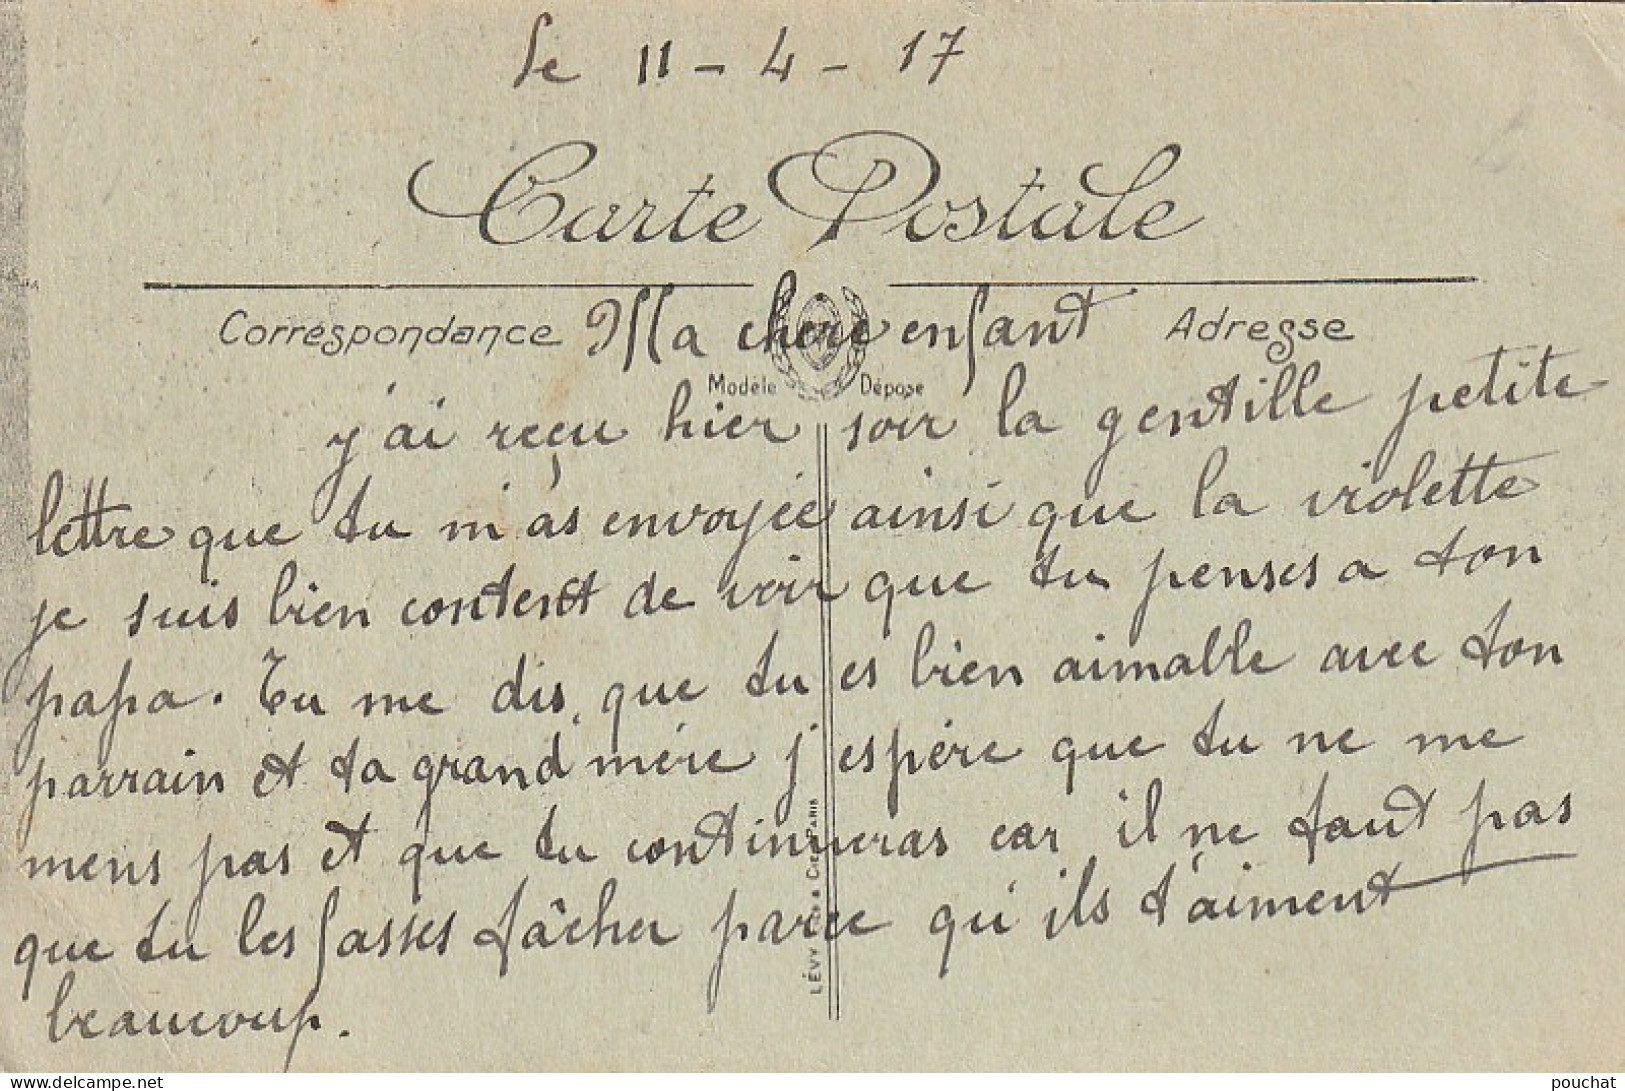 le 11-4-17
Carte Postale
Correspondance Ma chere enfant Adresse
Modèle Déposé
j'ai reçu hier soir la gentille petite
lettre que tu m'as envoyée ainsi que la violette
je suis bien content de voir que tu penses a ton
papa. Tu me dis que tu es bien aimable avec ton
parrain et ta grand mère j'espère que tu ne me
mens pas et que tu continueras car il ne faut pas
que tu les fasses fâcher parce qu'ils t'aiment
beaucoup.
LÉVY FILS & CIE PARIS
pouchat